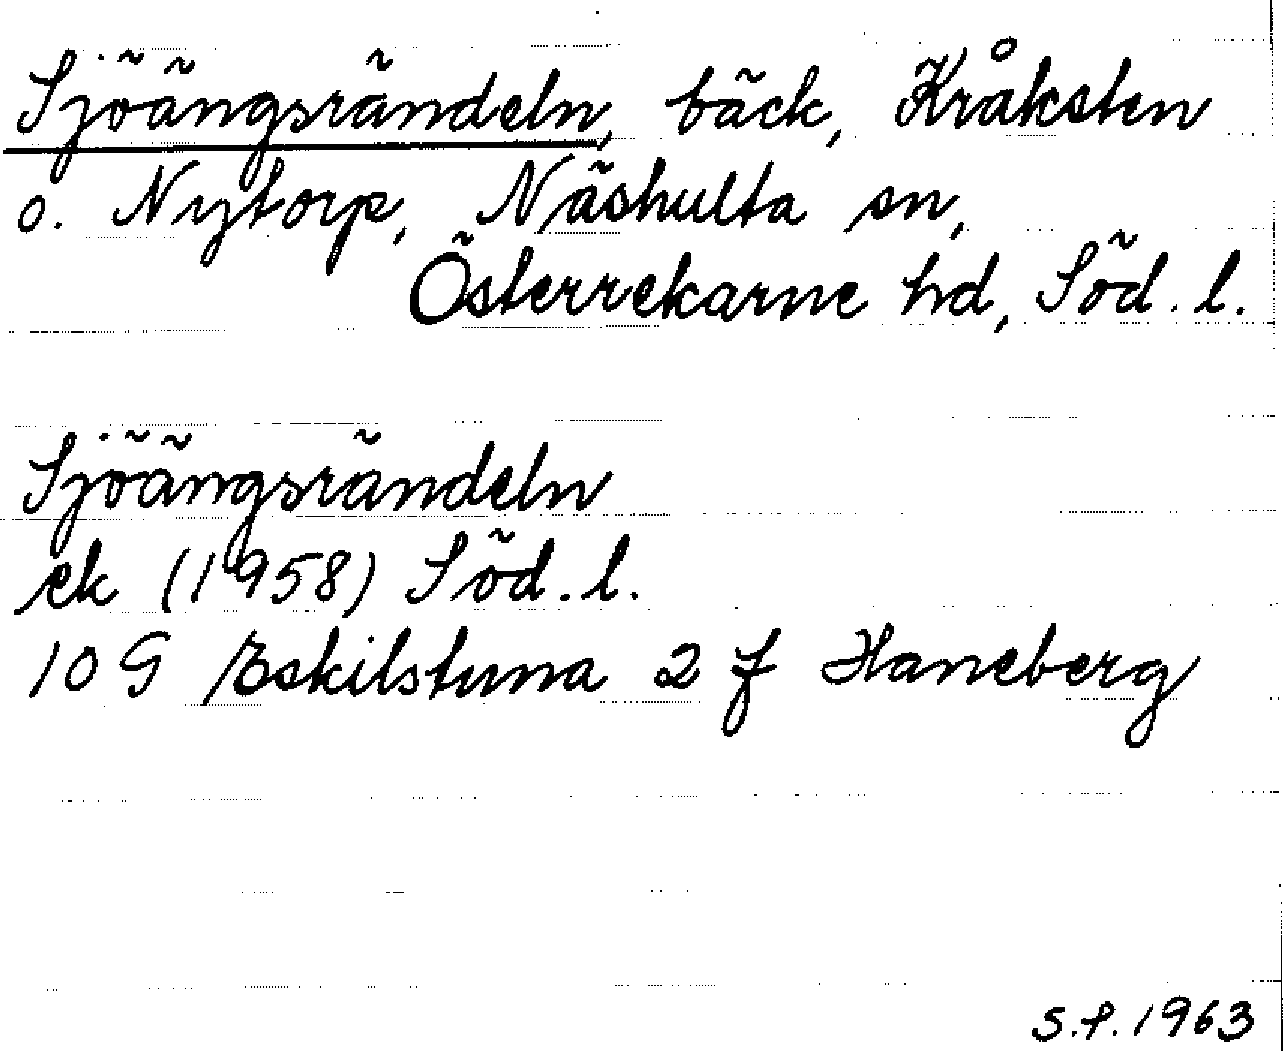 Sjöängsrändeln, bäck, Kråksten
o. Nytorp, Näshulta sn,
Österrekarne hd, Söd. l.
Sjöängsrändeln
ek (1958) Söd. l.
10 G Eskilstuna 2 f Haneberg
S.P. 1963